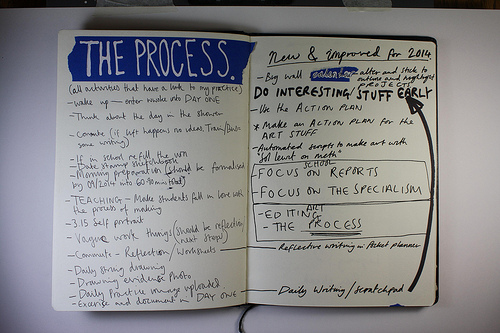 THE PROCESS.
(all activities that have a link to my practice)
- wake up — enter update into DAY ONE
- Think about the day in the shower
- Commute (if left happens no ideas. Train/Bus
some writing)
- If in school refill the urn
- Date stamp sketchbook
- Morning preparation (should be formalised
by 09/2014 into 60-90 mins
- TEACHING - Make students fall in love with
the process of making
- 3.15 Self portrait
- Vague work things (should be reflection,
next step!)
- Commute - Reflection/Worksheets
- Daily Bring drawing
- Drawing evidence Photo
- Daily Practice image uploaded
- Exercise and document in DAY ONE
New & improved for 2014
- Big wall calendar - alter and stick to
outline and
PROJECT!
DO INTERESTING/STUFF EARLY
- Use the ACTION PLAN
* Make an ACTION PLAN for the
ART STUFF
- Automated scripts to make art with
"Sol Lewitt on meth"
SCHOOL
- FOCUS ON REPORTS
- FOCUS ON THE SPECIALISM
ART
- EDITING
- THE PROCESS
Reflective writing in Pocket planner
Daily Writing/Scratchpad